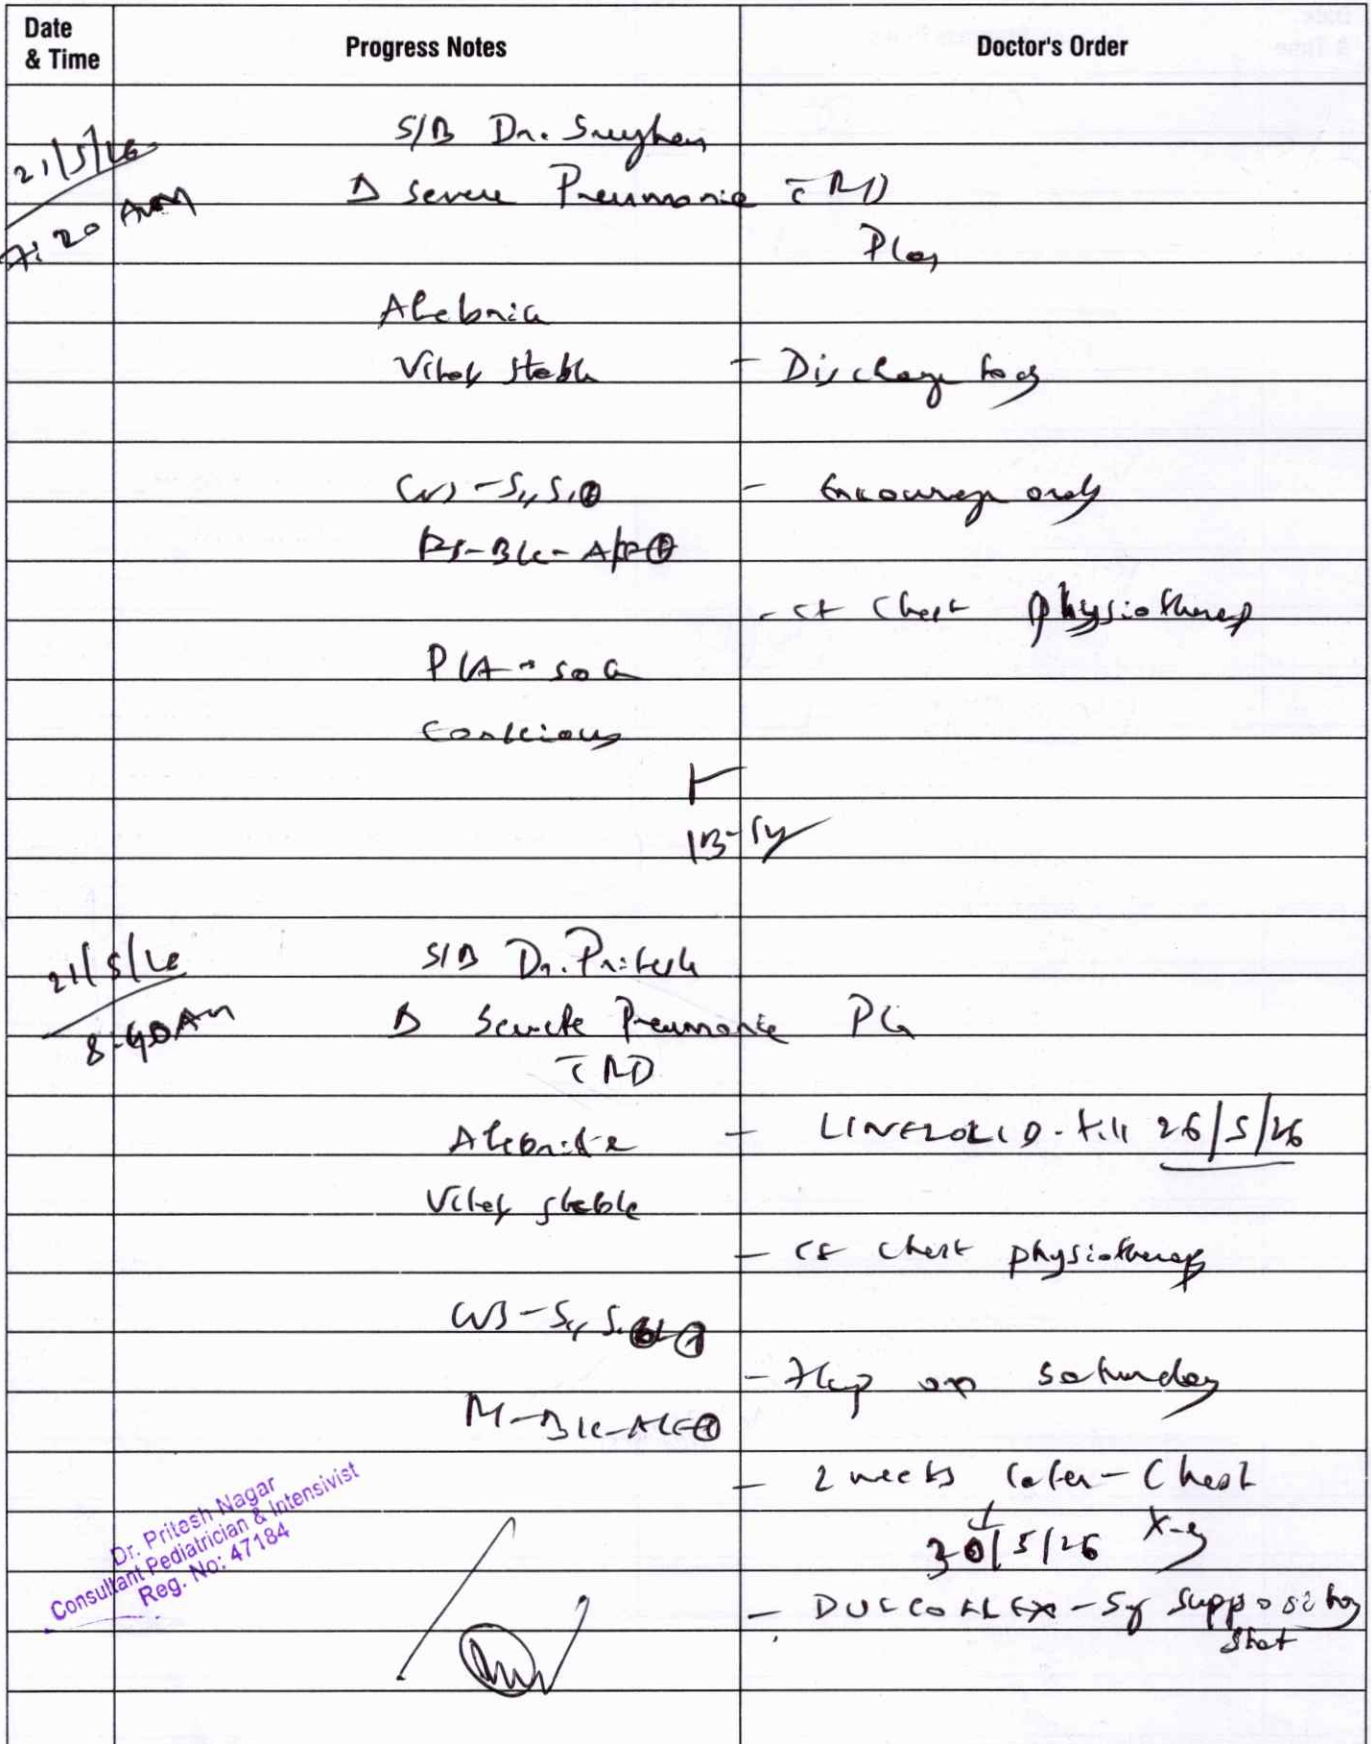 Date & Time Progress Notes Doctor's Order
21/5/26
7:20 AM
S/B Dr.
Δ severe Pneumonia c̄ RD
Plan
Afebrile
Vitals stable - Discharge today
CVS - S1, S2 ⊕ - Encourage orally
RS - B/L - AE ⊕
- ct chest physiotherapy
P/A - soft
Conscious
21/5/26
8:40 AM
S/B Dr. Pritesh
Δ Severe Pneumonia
c̄ RD
Afebrile - LINEZOLID - till 26/5/26
Vitals stable
- ct chest physiotherapy
CVS - S1, S2 ⊕
- F/up on Saturday
RS - B/L - AE ⊕
- 2 weeks later - Chest X-ray
↓
30/5/26
- DULCOFLEX - 5mg suppository stat
Dr. Pritesh Nagar
Consultant Pediatrician & Intensivist
Reg. No: 47184